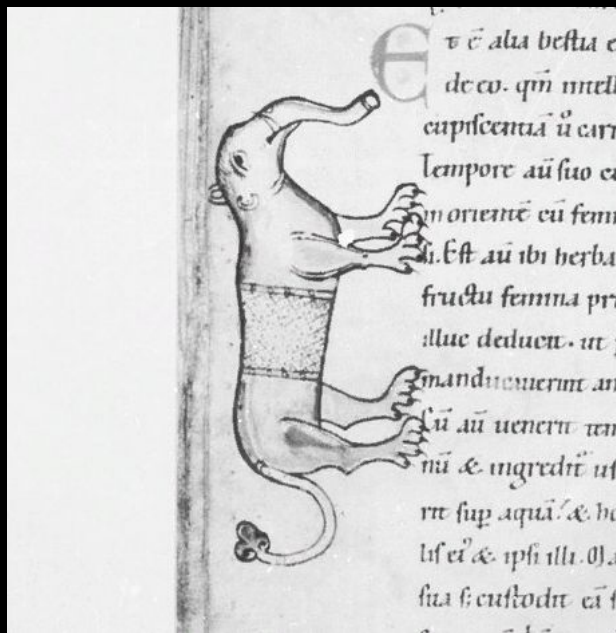 Et ē alia bestia e
de eo. qm̄ intell
cupiscentiā ů carn
Tempore aū suo cu
in orientē cū femi
Est aū ibi herba
fructu femina pr
illuc deducit. ut
manducauerint an
Cū aū uenerit tem
nū & ingredit᷑ us
rit sup̲ aquā. & ho
&. ipsi illi.
sua custodit eā s